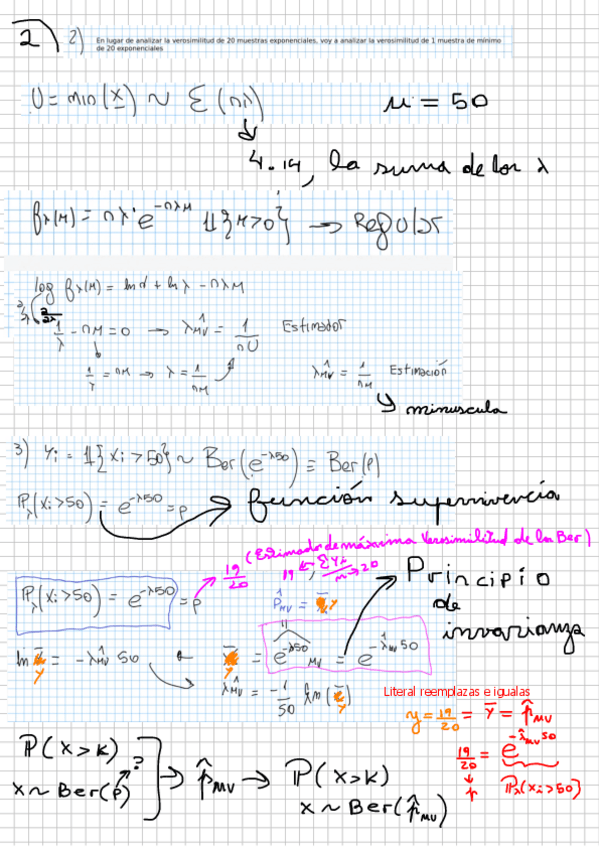 2
2) En lugar de analizar la verosimilitud de 20 muestras exponenciales, voy a analizar la verosimilitud de 1 muestra de mínimo
de 20 exponenciales
U = min(x) ~ ℰ(nλ)
μ = 50
4.14, la suma de los λ
fλ(μ) = nλ·e^-nλμ 𝟙{μ>0} → Regular
log fλ(μ) = ln n + ln λ - nλμ
1/λ - nμ = 0 → λ̂MV = 1/nU Estimador
1/λ = nμ → λ = 1/nμ
λ̂MV = 1/nμ Estimación
minuscula
3) Yi = 𝟙{Xi > 50} ~ Ber(e^-λ50) = Ber(p)
ℙλ(Xi>50) = e^-λ50 = p → función supervivencia
(Estimador de máxima verosimilitud de la Ber)
19/20
19 ← ΣYi
n → 20
ℙλ(Xi>50) = e^-λ50 = p
p̂MV = Y
Principio
de
invarianza
ln Y = -λ̂MV 50
Y = e^-λ50 MV = e^-λ̂MV 50
λ̂MV = -1/50 ln(Y)
Literal reemplazas e igualas
y = 19/20 = Y = p̂MV
19/20 = e^-λ̂MV 50
p
ℙλ(Xi>50)
ℙ(X>k)
X ~ Ber(p) ?
→ p̂MV → ℙ(X>k)
X ~ Ber(p̂MV)